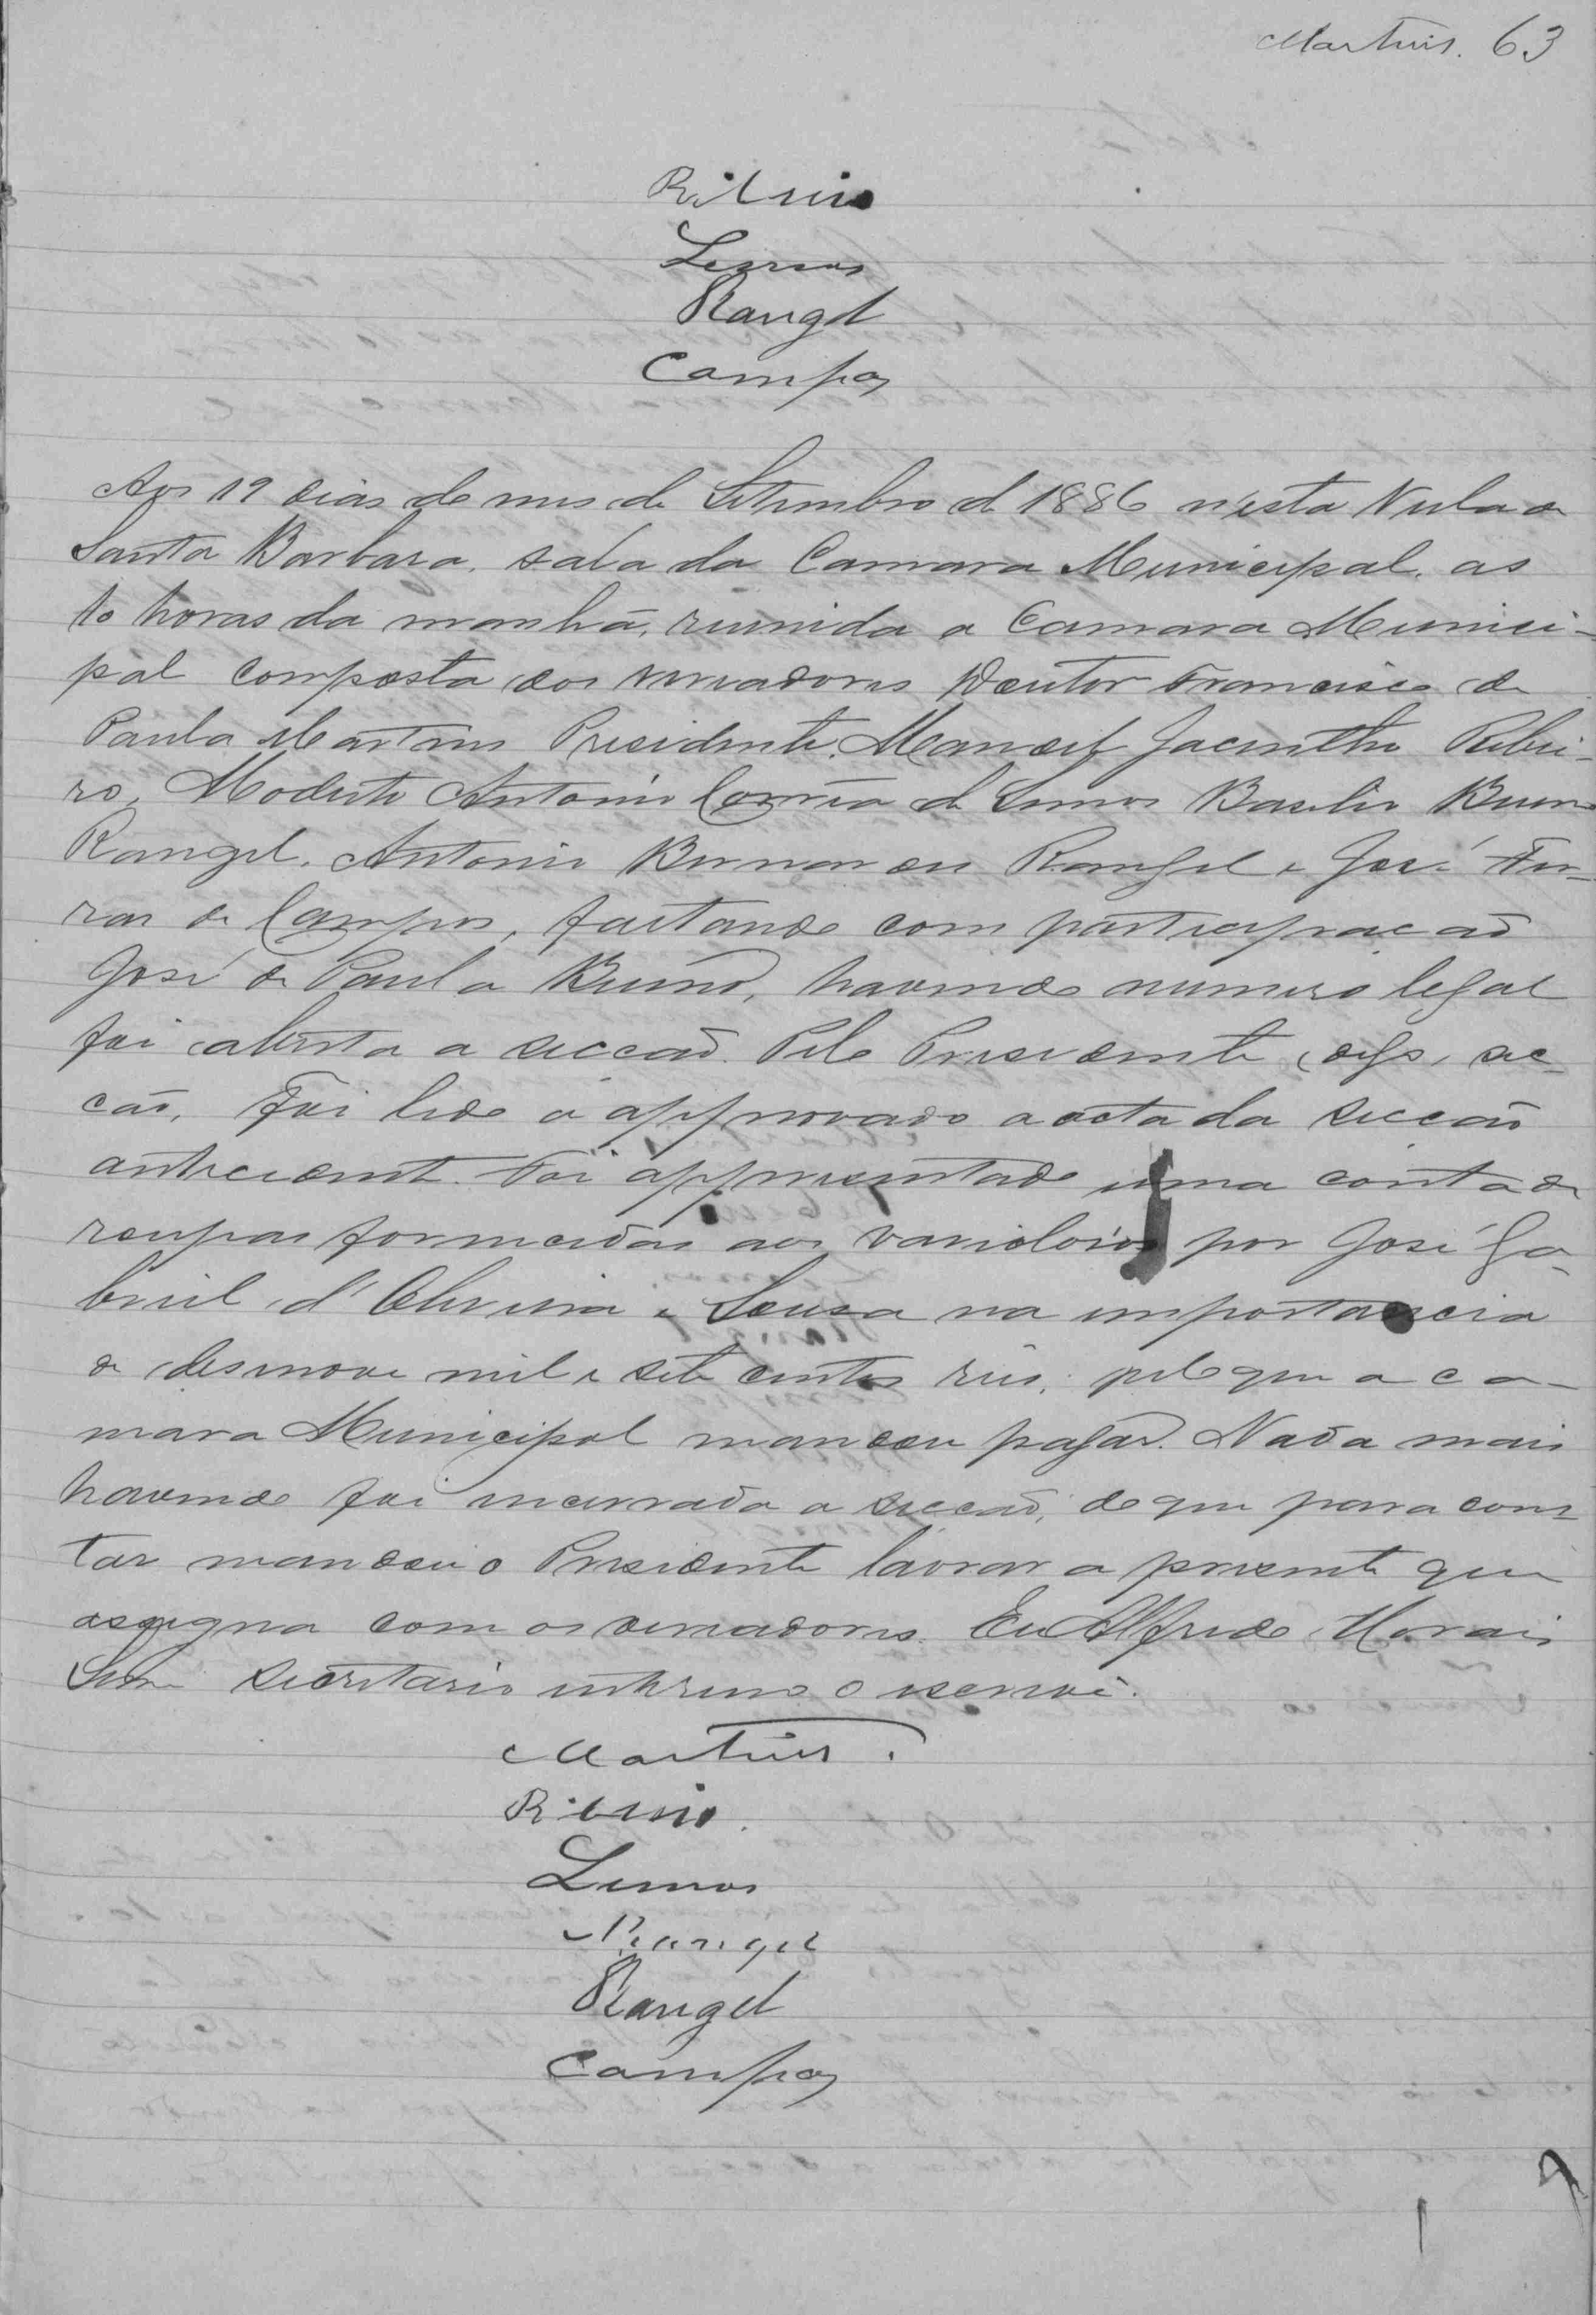 Martins. 63
Ribeiro
Lemos
Rangel
Campos
Aos 12 dias do mes de Setembro de 1886 n'esta Villa de
Santa Barbara, sala da Camara Municipal, as
10 horas da manhã, reunida a Camara Munici-
pal composta dos vereadores Doutor Francisco de
Paula Martins Presidente, Manoel Jacintho Ribei-
ro, Modesto Antonio Corrêa de Lemos Basilio Bueno
Rangel, Antonio Bernardes Rangel e José Fer-
raz de Campos, faltando com participação
José de Paula Bueno, havendo numero legal
foi aberta a secção. Pelo Presidente, digo, sec-
ção, Foi lido e approvado a acta da secção
antecedente. Foi appresentado uma conta de
roupas fornecidas aos variolosos por José Ga-
briel d'Oliveira e Sousa na importancia
de desenove mil e sete centos reis, pelo que a Ca-
mara Municipal mandou pagar. Nada mais
havendo foi encerrada a secção, do que para cons-
tar mandou o Presidente lavrar a presente que
assigna com os vereadores. Eu Alfredo Morais
secretario interino o escrevi.
Martins.
Ribeiro.
Lemos
Rangel
Rangel
Campos